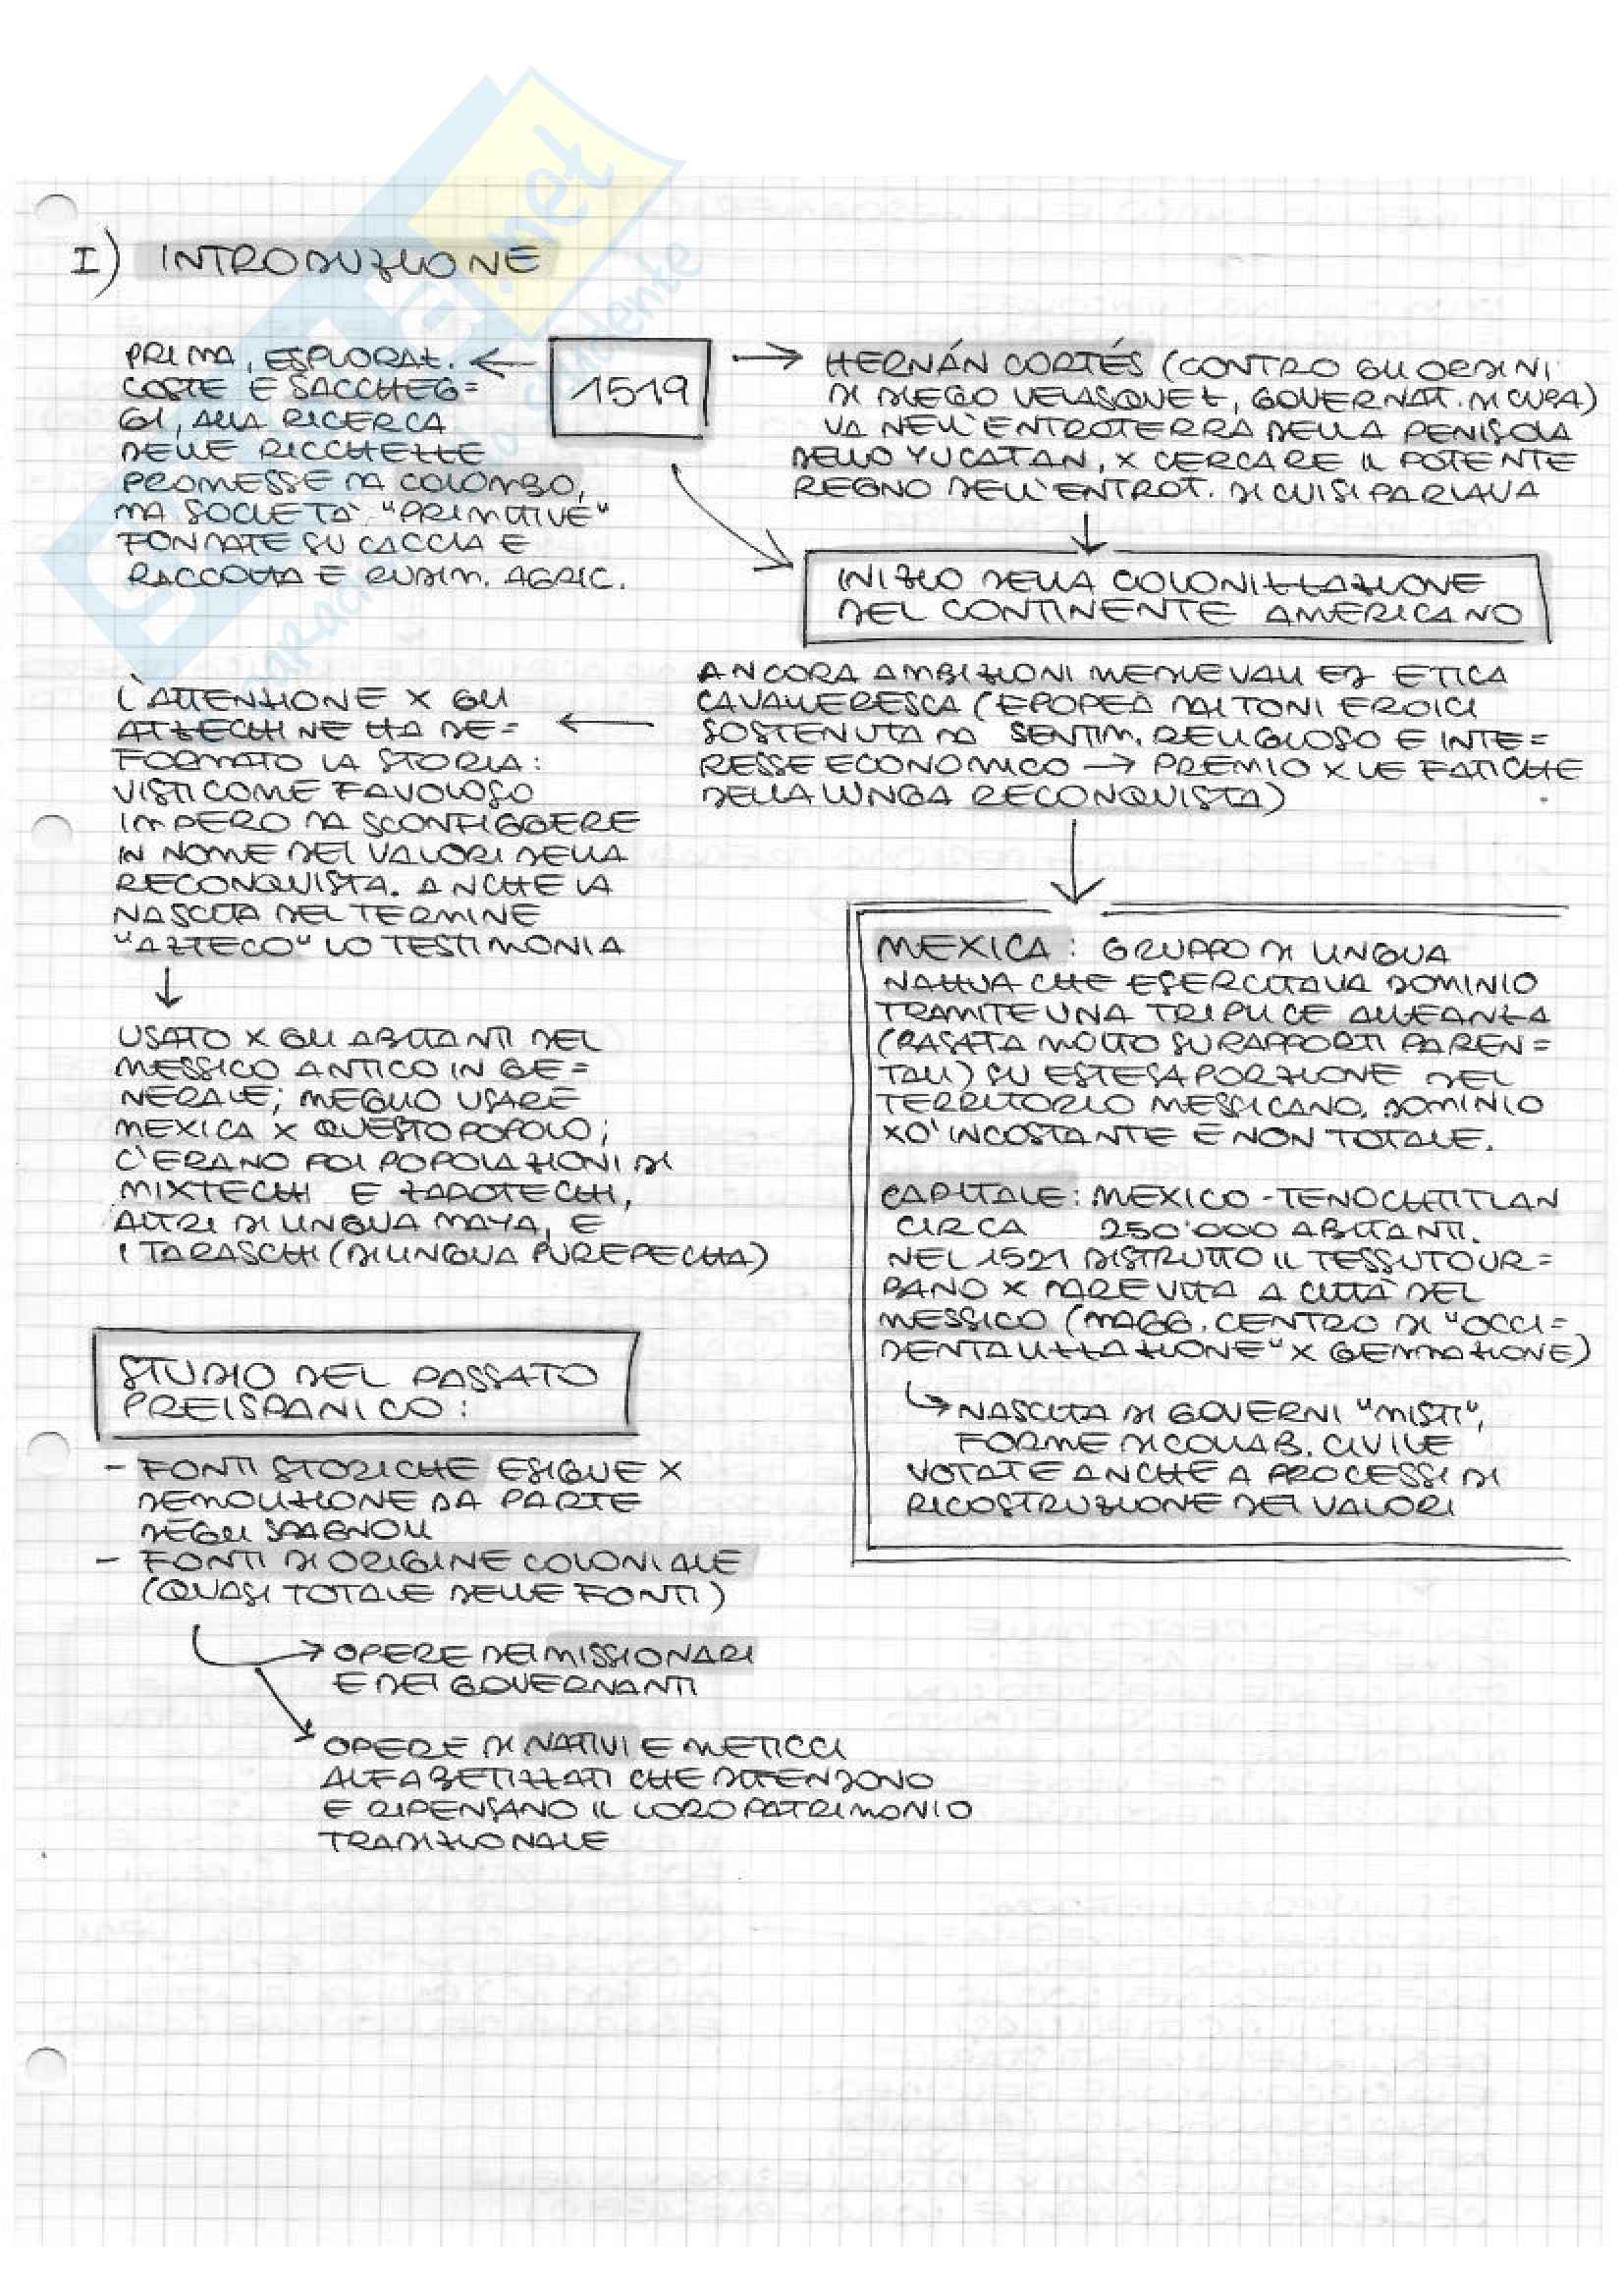 I) INTRODUZIONE
1519
PRIMA, ESPLORAZ.
COSTE E SACCHEG=
GI, ALLA RICERCA
DELLE RICCHEZZE
PROMESSE DA COLOMBO,
MA SOCIETÀ "PRIMITIVE"
FONDATE SU CACCIA E
RACCOLTA E RUDIM. AGRIC.
HERNÁN CORTÉS (CONTRO GLI ORDINI
DI DIEGO VELASQUEZ, GOVERNAT. DI CUBA)
VA NELL'ENTROTERRA DELLA PENISOLA
DELLO YUCATAN, X CERCARE IL POTENTE
REGNO DELL'ENTROT. DI CUI SI PARLAVA
INIZIO DELLA COLONIZZAZIONE
DEL CONTINENTE AMERICANO
ANCORA AMBIZIONI MEDIEVALI ED ETICA
CAVALLERESCA (EPOPEA DAI TONI EROICI
SOSTENUTA DA SENTIM. RELIGIOSO E INTE=
RESSE ECONOMICO → PREMIO X LE FATICHE
DELLA LUNGA RECONQUISTA)
L'ATTENZIONE X GLI
AZTECHI NE HA DE=
FORMATO LA STORIA:
VISTI COME FAVOLOSO
IMPERO DA SCONFIGGERE
IN NOME DEI VALORI DELLA
RECONQUISTA. ANCHE LA
NASCITA DEL TERMINE
"AZTECO" LO TESTIMONIA
USATO X GLI ABITANTI DEL
MESSICO ANTICO IN GE=
NERALE; MEGLIO USARE
MEXICA X QUESTO POPOLO;
C'ERANO POI POPOLAZIONI DI
MIXTECHI E ZAPOTECHI,
ALTRI DI LINGUA MAYA, E
I TARASCHI (DI LINGUA PUREPECHA)
MEXICA: GRUPPO DI LINGUA
NAHUA CHE ESERCITAVA DOMINIO
TRAMITE UNA TRIPLICE ALLEANZA
(BASATA MOLTO SU RAPPORTI PAREN=
TALI) SU ESTESA PORZIONE DEL
TERRITORIO MESSICANO, DOMINIO
XO' INCOSTANTE E NON TOTALE.
CAPITALE: MEXICO-TENOCHTITLAN
CIRCA 250'000 ABITANTI.
NEL 1521 DISTRUTTO IL TESSUTO UR=
BANO X DARE VITA A CITTÀ DEL
MESSICO (MAGG. CENTRO DI "OCCI=
DENTALIZZAZIONE" X GEMMAZIONE)
NASCITA DI GOVERNI "MISTI",
FORME DI COLLAB. CIVILE
VOTATE ANCHE A PROCESSI DI
RICOSTRUZIONE DEI VALORI
STUDIO DEL PASSATO
PREISPANICO:
- FONTI STORICHE ESIGUE X
DEMOLIZIONE DA PARTE
DEGLI SPAGNOLI
- FONTI DI ORIGINE COLONIALE
(QUASI TOTALE DELLE FONTI)
OPERE DEI MISSIONARI
E DEI GOVERNANTI
OPERE DI NATIVI E METICCI
ALFABETIZZATI CHE DIFENDONO
E RIPENSANO IL LORO PATRIMONIO
TRADIZIONALE